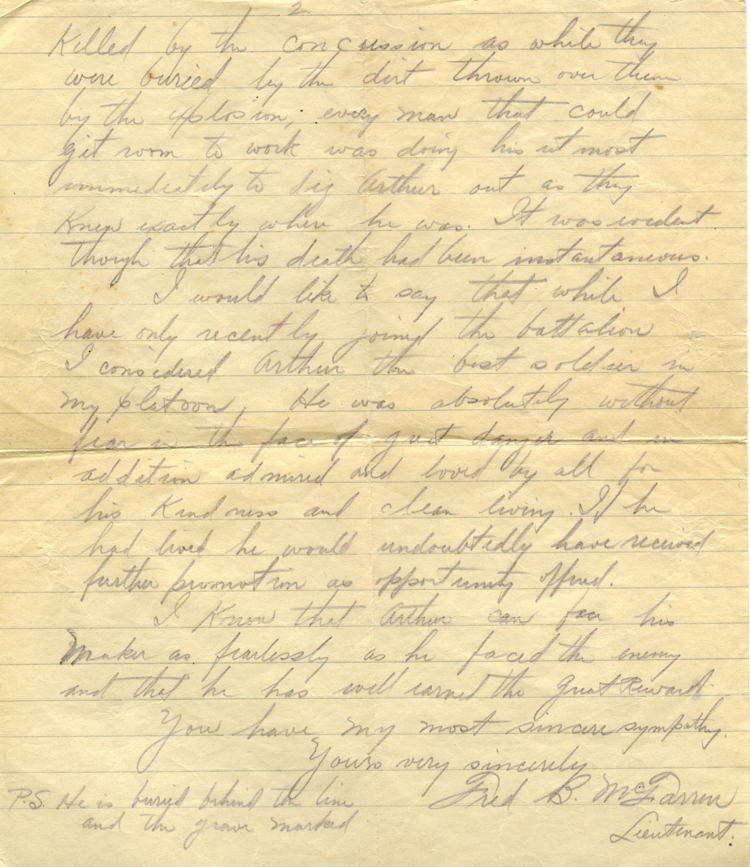 2
Killed by the concussion as while they
were buried by the dirt thrown over them
by the explosion, every man that could
get room to work was doing his utmost
immediately to dig Arthur out as they
knew exactly where he was. It was evident
though that his death had been instantaneous.
I would like to say that while I
have only recently joined the battalion
I considered Arthur the best soldier in
my platoon, He was absolutely without
fear in the face of great danger and in
addition admired and loved by all for
his kindness and clean living. If he
had lived he would undoubtedly have received
further promotion as opportunity offered.
I know that Arthur can face his
Maker as fearlessly as he faced the enemy
and that he has well earned the Great Reward
You have my most sincere sympathy.
Yours very sincerely
Fred B.
Lieutenant.
P.S. He is buried behind the line
and the grave marked